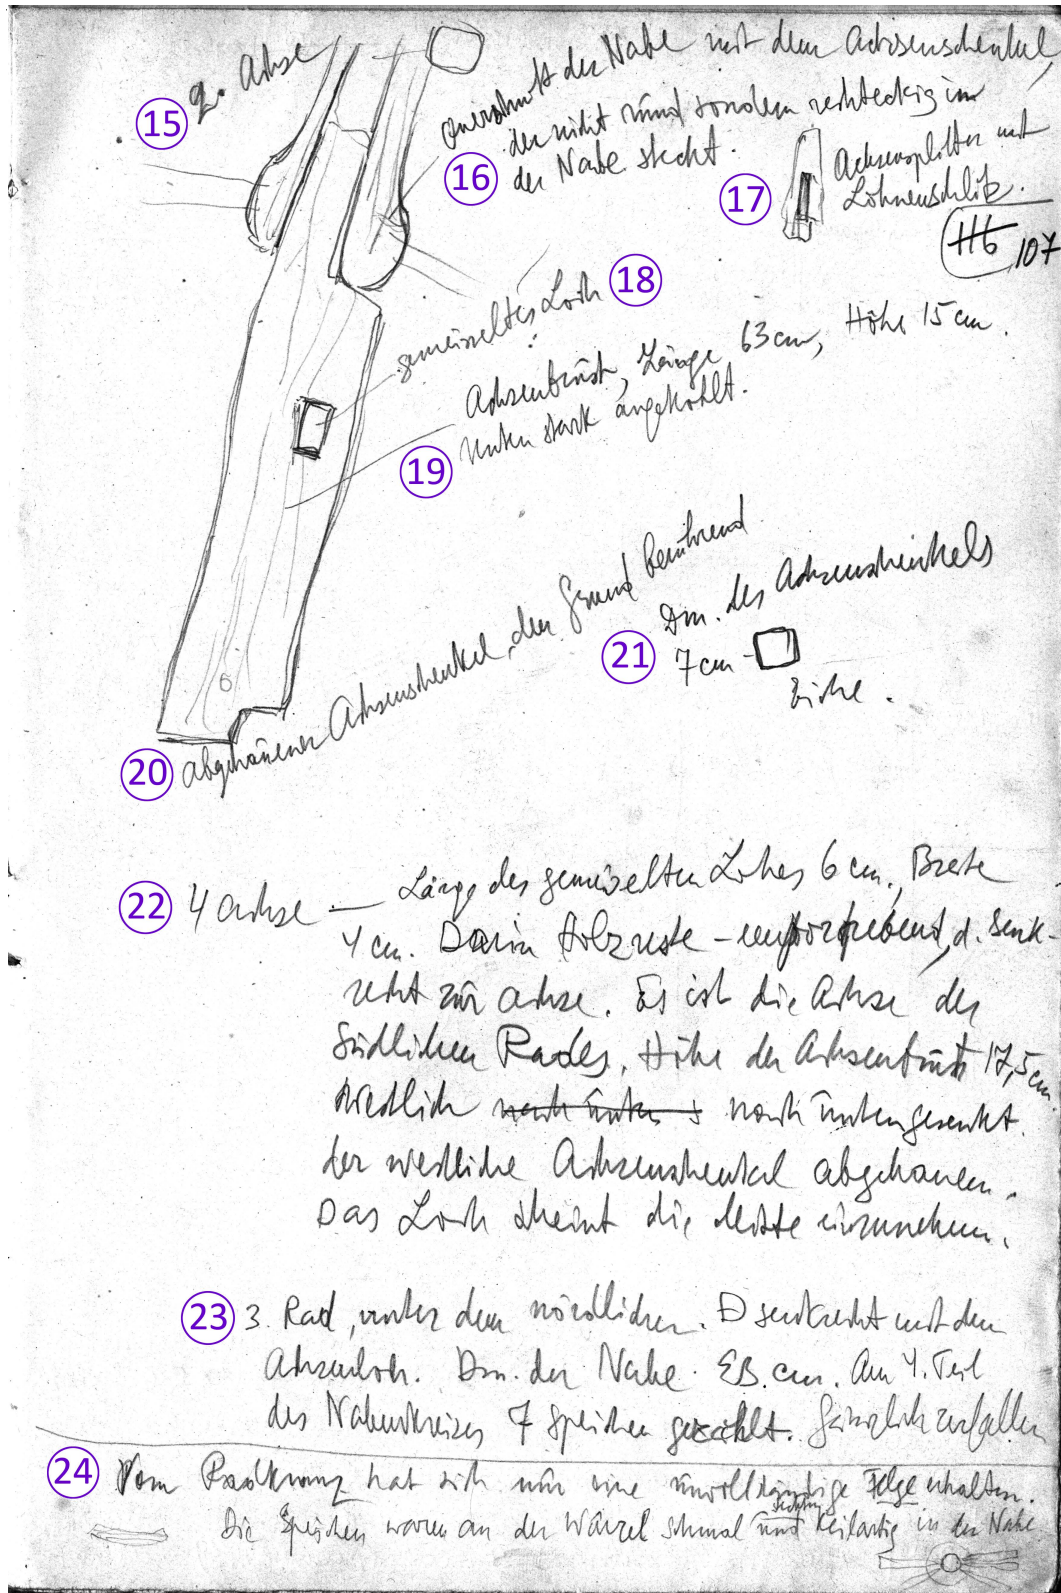 15 2. Achse
Querschnitt der Nabe mit dem Achsenschenkel,
16 der nicht rund sondern rechteckig in
der Nabe steckt.
17 Achsensplitter mit
Lohnenschlitz.
H6 107
gemeisseltes Loch 18
Achsenbrust, Länge 63 cm, Höhe 15 cm.
19 Unten stark angekohlt.
20 abgehauener Achsenschenkel, den Grund berührend
21 Dm. des Achsenschenkels
7 cm -
Eiche.
22 4 Achse — Länge des gemeiselten Loches 6 cm., Breite
4 cm. Darin Holzreste - emporstrebend, d. senk-
recht zur Achse. Es ist die Achse des
südlichen Rades. Höhe der Achsenbrust 17,5 cm.
westlich nach unten s nach unten gesenkt.
Der westliche Achsenschenkel abgehauen.
Das Loch scheint die Mitte einzunehmen.
23 3. Rad, unter dem nördlichen. D senkrecht mit dem
Achsenloch. Dm. der Nabe. cm. Am 4. Teil
des Nabenkreises 7 Speichen gezählt. Gänzlich zerfallen
24 Vom Radkranz hat sich nur eine unvollständige Felge erhalten.
Die Speichen waren an der Wurzel schmal und keilartig in der Nabe